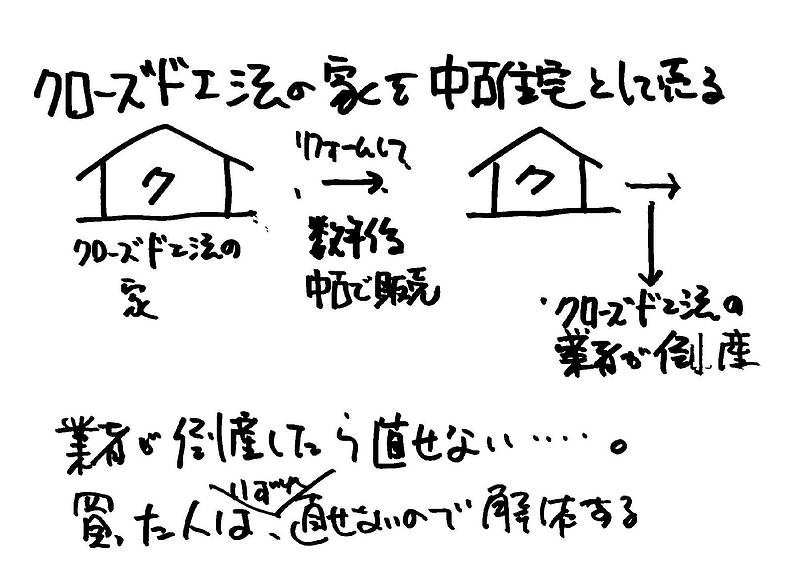 クローズド工法の家を中古住宅として売る
ク
リフォームして、
ク
数年後
中古で販売
クローズド工法の
家
クローズド工法の
業者が倒産
業者が倒産したら直せない……。
いずれ
買った人は、直せないので解体する